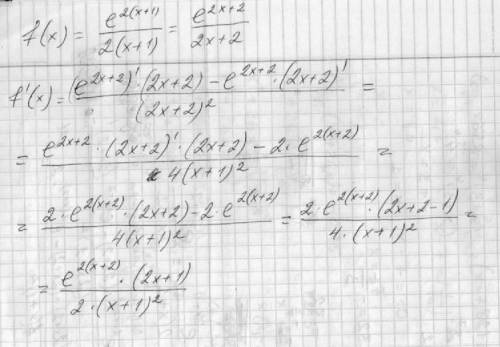 f(x) = e^{2(x+1)} / 2(x+1) = e^{2x+2} / 2x+2
f'(x) = (e^{2x+2})' · (2x+2) − e^{2x+2} · (2x+2)' / (2x+2)^2 =
= e^{2x+2} · (2x+2)' · (2x+2) − 2 · e^{2(x+2)} / 4(x+1)^2 =
= 2 · e^{2(x+2)} · (2x+2) − 2 · e^{2(x+2)} / 4(x+1)^2 = 2 · e^{2(x+2)} · (2x+2−1) / 4 · (x+1)^2 =
= e^{2(x+2)} · (2x+1) / 2 · (x+1)^2